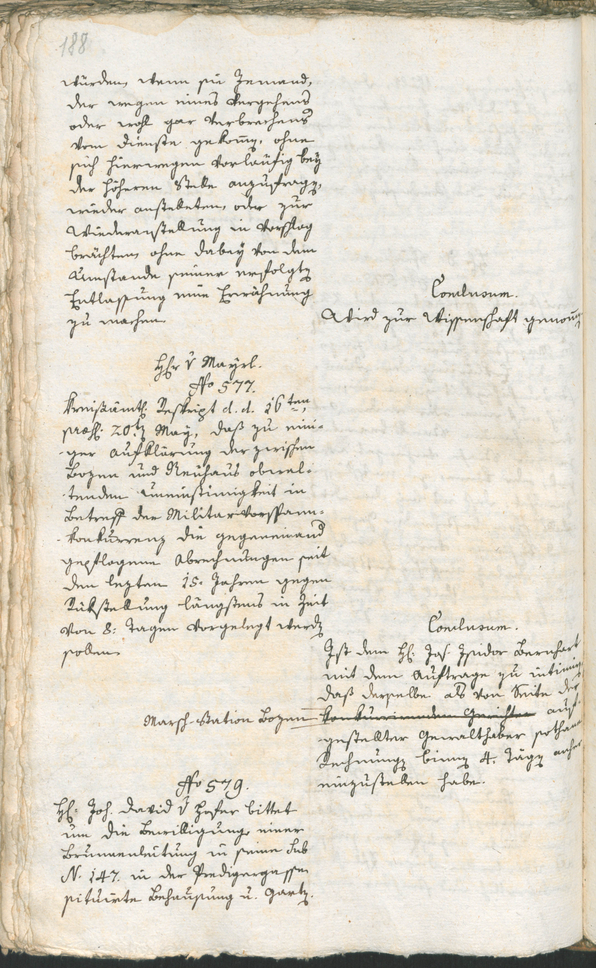 188
würden, wenn sie Jemand,
der wegen eines Vergehens
oder wohl gar Verbrechens
vom Dienste gekom̄en, ohne
sich hierwegen vorläufig bey
der höheren Stelle anzufragen,
wieder anstelleten, oder zur
Wiederanstellung in Vorschlag
brächten, ohne dabey von dem
Umstande seiner erfolgten
Entlassung eine Erwähnung
zu machen.
Conclusum.
Wird zur Wissenschaft genom̄en
Hr v Mayrl.
No 577.
Kreisämtl. Reskript d. d. 16ten
praes. 20ten May, daß zu eini-
ger Aufklärung der zwischen
Bozen und Neuhaus obwal-
tenden Uneinstimigkeit in
Betreff der Militarvorspann-
konkurrenz die gegeneinand
gepflogene Abrechnungen seit
den lezten 15. Jahren gegen
Rükstellung längstens in Zeit
von 8. Tagen vorgelegt werden
sollen.
Conclusum.
Ist dem H. Jos. Isidor Bernhart
mit dem Auftrage zu intim
daß derselbe als von Seite der
Marsch-Station Bozen konkurirenden Gerichten auf-
gestellter Gewalthaber sothane
Rechnungen binnen 4. Tägen anher
einzustellen habe.
No 579.
H. Joh. David v Hofer bittet
um die Bewilligung einer
Brunnenleitung in seine sub
N. 147. in der Predigergassen
situirte Behausung u. Garten.